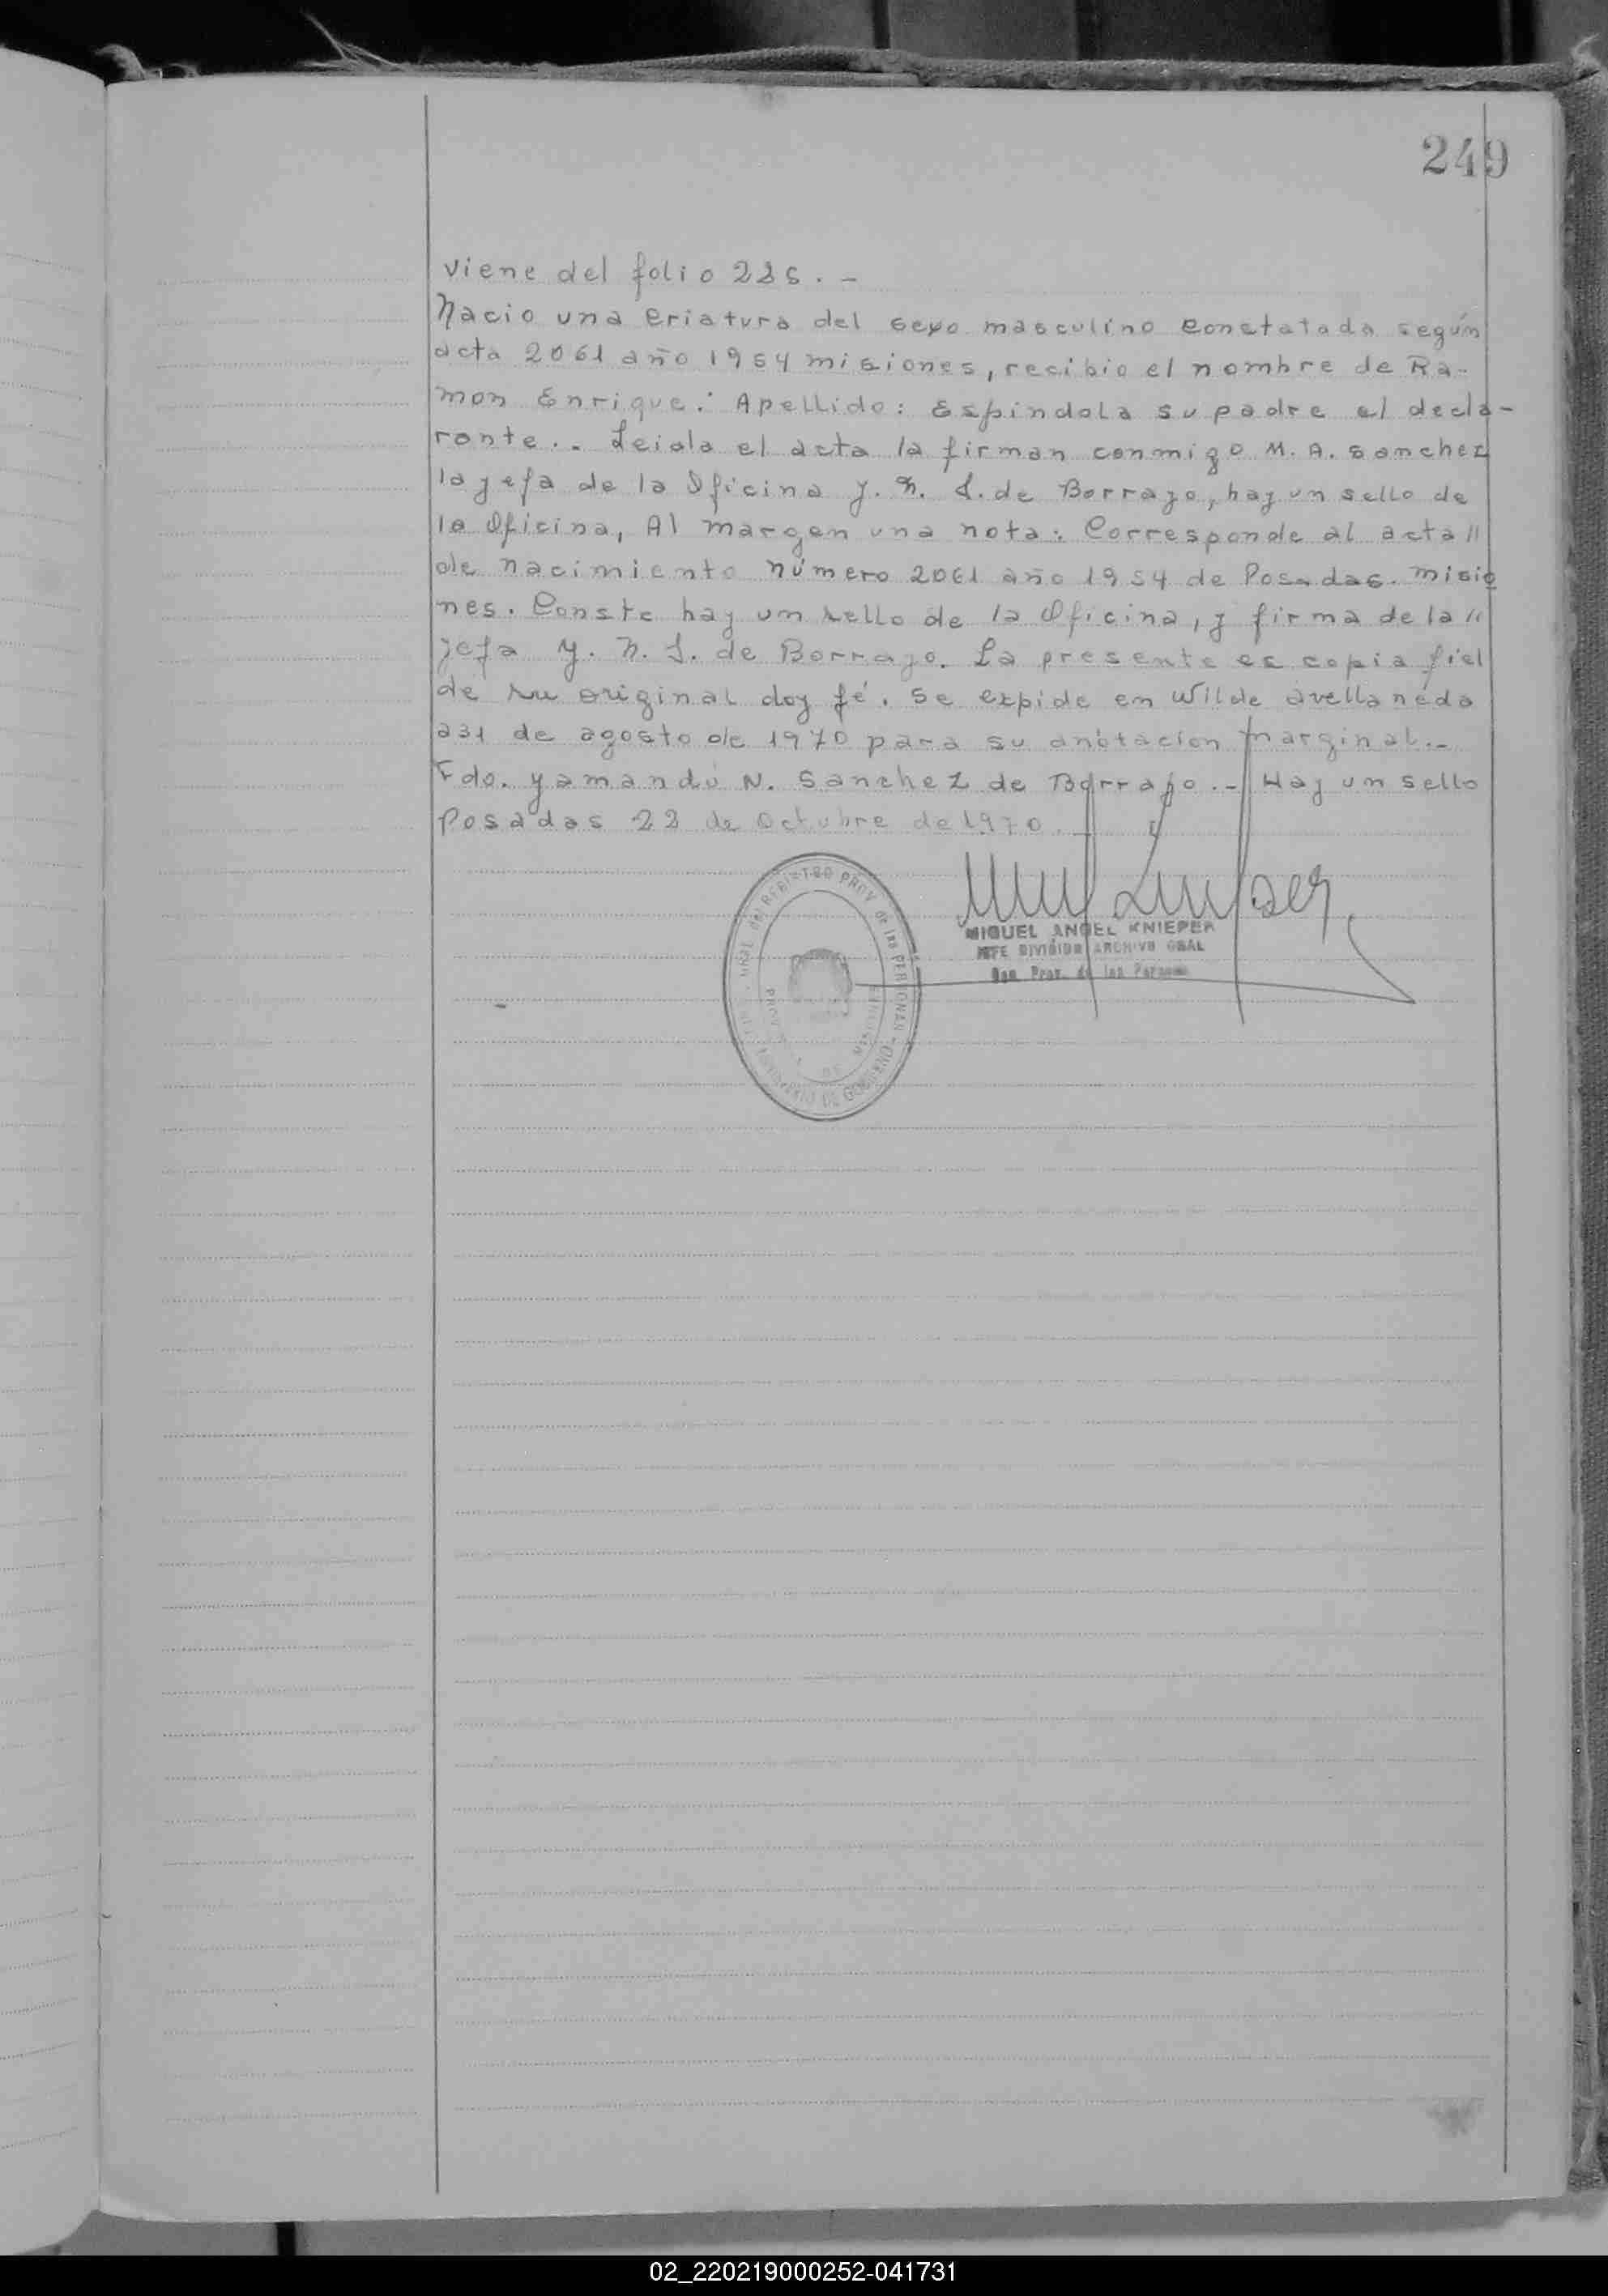 249
viene del folio 226. -
Nacio una criatura del sexo masculino constatada según
acta 2061 año 1954 misiones, recibio el nombre de Ra-
mon Enrique. Apellido: Espindola su padre el decla-
rante.. Leida el acta la firman conmigo M. A. Sanchez
la jefa de la Oficina y. N. S. de Borrajo, hay un sello de
la Oficina, Al margen una nota: Corresponde al acta //
de nacimiento número 2061 año 1954 de Posadas. misio
nes. Conste hay un sello de la Oficina, y firma de la //
jefa y. N. S. de Borrajo. La presente es copia fiel
de su original doy fé. se expide en Wilde avellaneda
a 31 de agosto de 1970 para su anotacion marginal.-
Fdo. yamandú N. Sanchez de Borrajo.- Hay un sello
Posadas 22 de Octubre de 1970.
MIGUEL ANGEL KNIEPER
JEFE DIVISION ARCHIVO GRAL
Prov. de las Personas
GRAL. del REGISTRO PROV. de las PERSONAS
MINISTERIO DE GOBIERNO
MISIONES
02_220219000252-041731